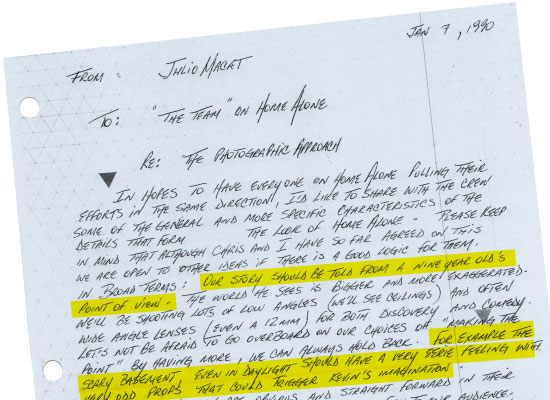 JAN 7, 1990
FROM: JULIO MACAT
TO: "THE TEAM" ON HOME ALONE
RE: THE PHOTOGRAPHIC APPROACH
IN HOPES TO HAVE EVERYONE ON HOME ALONE PULLING THEIR
EFFORTS IN THE SAME DIRECTION, I'D LIKE TO SHARE WITH THE CREW
SOME OF THE GENERAL AND MORE SPECIFIC CHARACTERISTICS OF THE
DETAILS THAT FORM THE LOOK OF HOME ALONE - PLEASE KEEP
IN MIND THAT ALTHOUGH CHRIS AND I HAVE SO FAR AGREED ON THIS
WE ARE OPEN TO OTHER IDEAS IF THERE IS A GOOD LOGIC FOR THEM.
IN BROAD TERMS: OUR STORY SHOULD BE TOLD FROM A NINE YEAR OLD'S
POINT OF VIEW - THE WORLD HE SEES IS BIGGER AND MORE EXAGGERATED.
WE'LL BE SHOOTING LOTS OF LOW ANGLES (WE'LL SEE CEILINGS) AND OFTEN
WIDE ANGLE LENSES (EVEN A 12MM) FOR BOTH DISCOVERY AND COMEDY.
LET'S NOT BE AFRAID TO GO OVERBOARD ON OUR CHOICES OF "MAKING THE
POINT" BY HAVING MORE, WE CAN ALWAYS HOLD BACK. FOR EXAMPLE THE
SCARY BASEMENT, EVEN IN DAYLIGHT SHOULD HAVE A VERY EERIE FEELING WITH
VERY ODD PROPS THAT COULD TRIGGER KEVIN'S IMAGINATION
ARE OBVIOUS AND STRAIGHT FORWARD IN THEIR
OUR AUDIENCE.